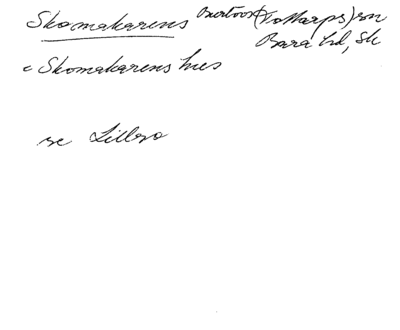 Skomakarens (Tottarps) sn
Bara hd, Sk
c Skomakarens hus
se Lillsjö